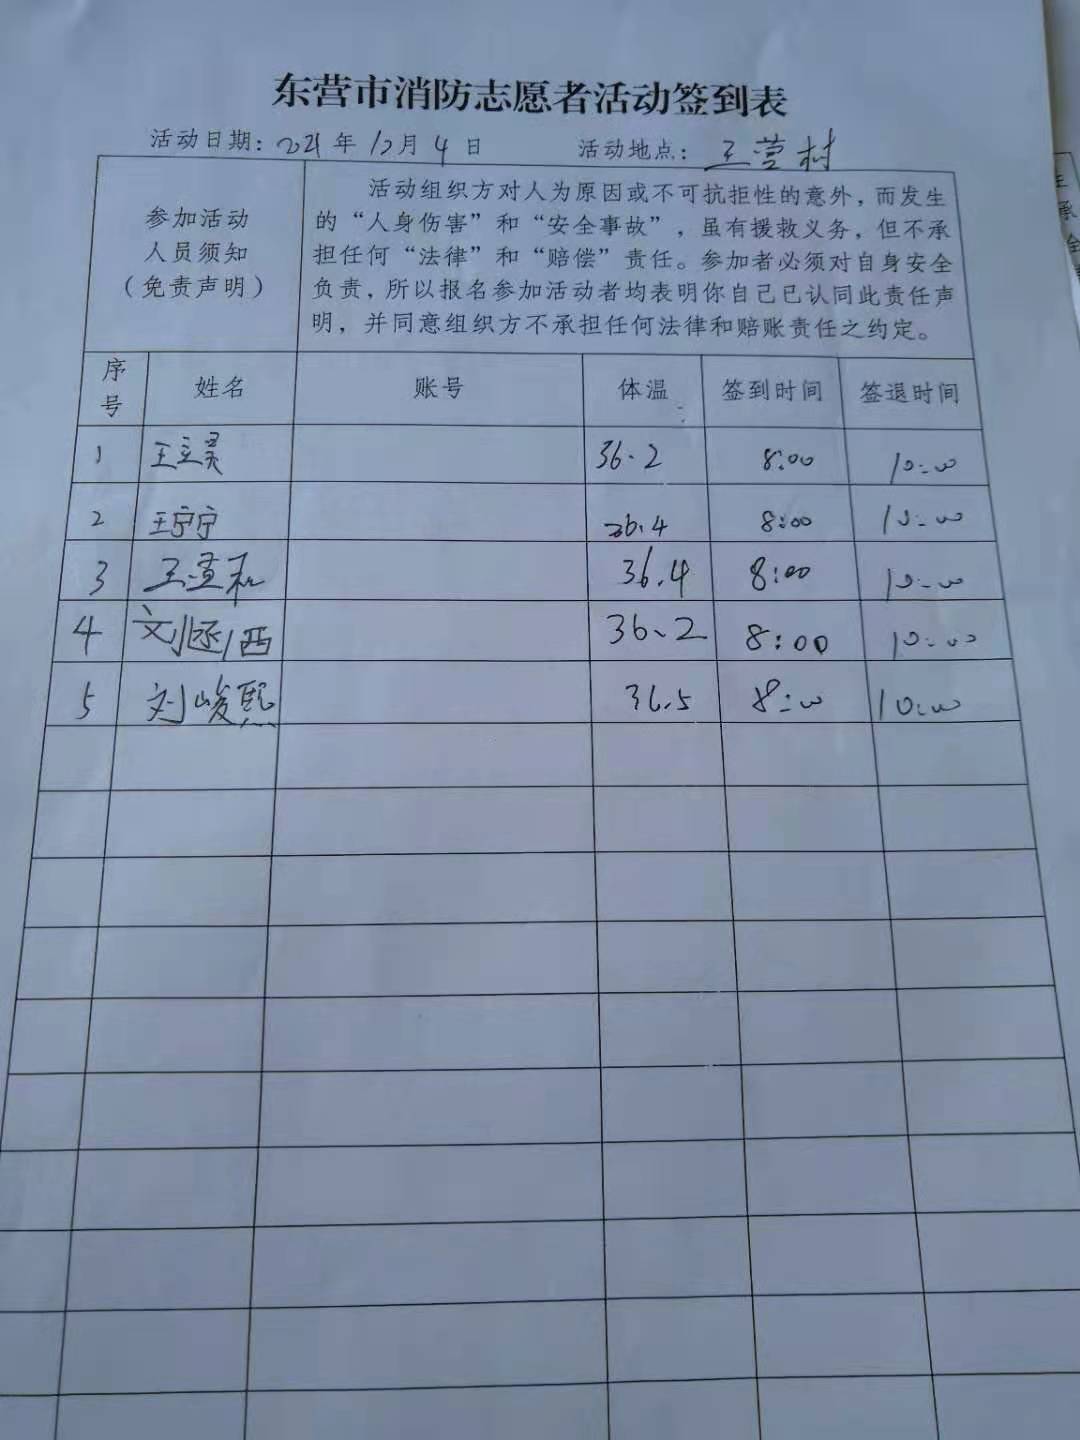 东营市消防志愿者活动签到表
活动日期: 2021年12月4日 活动地点: 王营村
参加活动
人员须知
（免责声明）
活动组织方对人为原因或不可抗拒性的意外，而发生
的“人身伤害”和“安全事故”，虽有援救义务，但不承
担任何“法律”和“赔偿”责任。参加者必须对自身安全
负责，所以报名参加活动者均表明你自己已认同此责任声
明，并同意组织方不承担任何法律和赔账责任之约定。
序号 姓名 账号 体温 签到时间 签退时间
1 王立昊 36.2 8:00 10:00
2 王宁宁 36.4 8:00 10:00
3 王 36.4 8:00 10:00
4 刘 36.2 8:00 10:00
5 刘峻熙 36.5 8:00 10:00